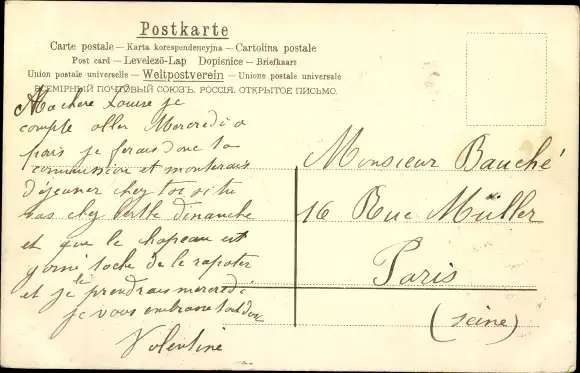 Postkarte
Carte postale — Karta korespondencyjna — Cartolina postale
Post card — Levelező-Lap Dopisnice — Briefkaart
Union postale universelle — Weltpostverein — Unione postale universale
ВСЕМІРНЫЙ ПОЧТОВЫЙ СОЮЗЪ. РОССІЯ. ОТКРЫТОЕ ПИСЬМО.
Ma chere Louise je
compte aller Mercredi a
paris je ferais donc ta
commission et monterais
déjeuner chez toi si tu
vas chez berthe dimanche
et que le chapeau est
garni tache de le rapoter
et je le prendrais mercredi
je vous embrasse
Valentine
Monsieur Bauché
16 Rue Müller
Paris
(seine)